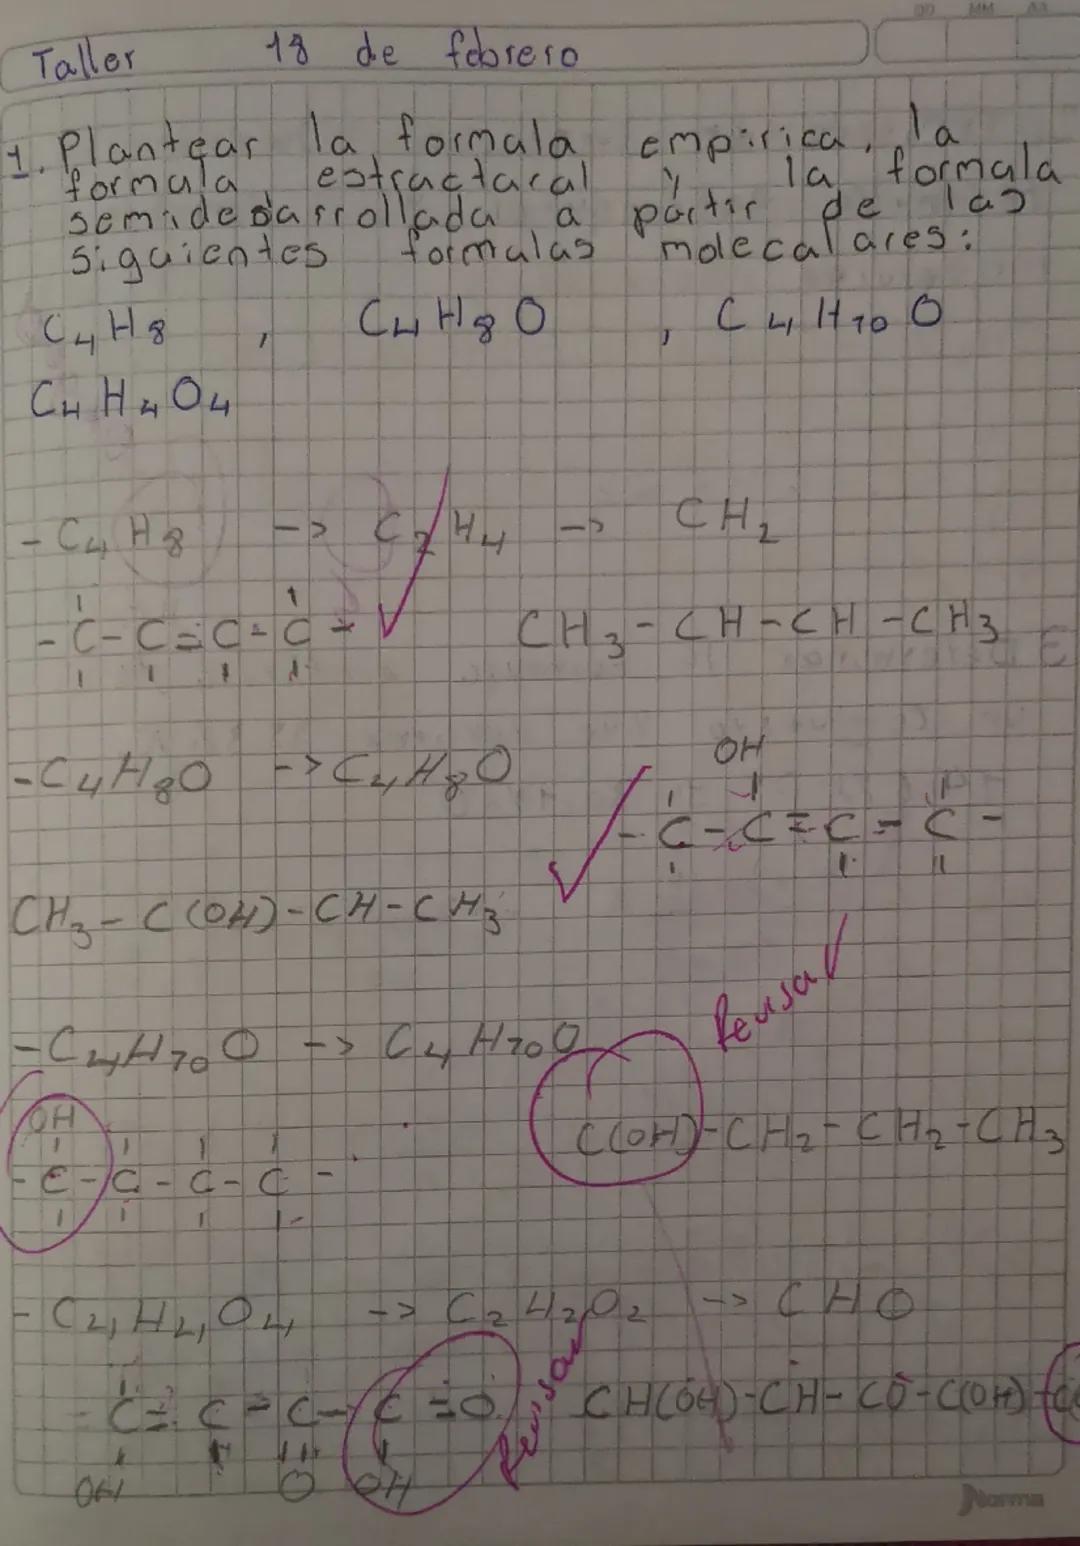 DD MM AA
Taller 18 de febrero
1. Plantear la formula empirica, la
formula estructural y la formula
semidesarrollada a partir de las
siguientes formulas moleculares:
C4H8 , C4H8O , C4H10O
C4H4O4
- C4H8 -> C2H4 -> CH2
- C - C = C - C - CH3 - CH - CH - CH3
OH
- C4H8O -> C4H8O - C - C = C - C -
CH3 - C(OH) - CH - CH3
Revisar
- C4H10O -> C4H10O
OH C(OH) - CH2 - CH2 - CH3
- C - C - C - C -
- C4H4O4 -> C2H2O2 -> CHO
Revisar
- C = C - C - C = O CH(OH) - CH - CO - C(OH) -
OH O OH
Norma